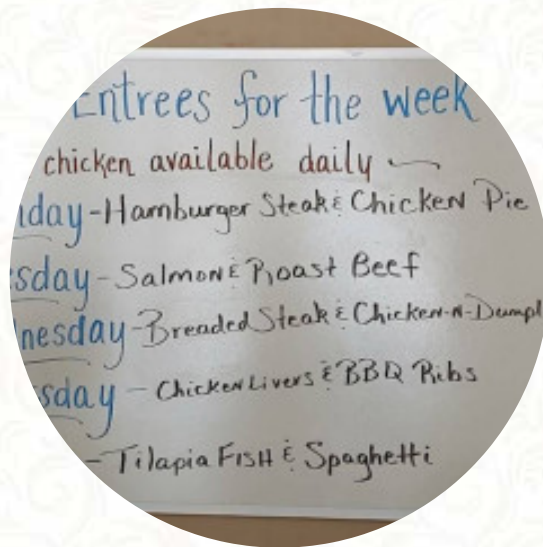 Entrees for the week
chicken available daily
day - Hamburger Steak & Chicken Pie
sday - Salmon & Roast Beef
nesday - Breaded Steak & Chicken-N-Dumpl
sday - Chicken Livers & BBQ Ribs
- Tilapia FISH & Spaghetti